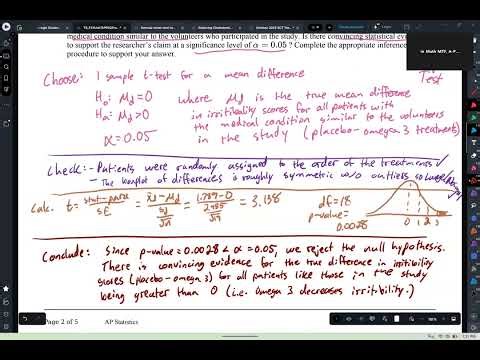 medical condition similar to the volunteers who participated in the study. Is there convincing statistical
to support the researcher's claim at a significance level of α = 0.05 ? Complete the appropriate inference
procedure to support your answer.
Choose: 1 sample t-test for a mean difference
Test
H₀: μd = 0 where μd is the true mean difference
Ha: μd > 0 in irritibility scores for all patients with
the medical condition similar to the volunteers
α = 0.05 in the study (placebo - omega 3 treatments)
Check: - Patients were randomly assigned to the order of the treatments ✓
- The boxplot of differences is roughly symmetric w/o outliers so
Calc. t = = x̄d - μd / sd/√n = 1.789-0 / 2.485/√n = 3.138 df = 18
p-value =
0.0028
0 1 2 3
Conclude: Since p-value = 0.0028 < α = 0.05, we reject the null hypothesis.
There is convincing evidence for the true difference in irritibility
scores (placebo - omega 3) for all patients like those in the study
being greater than 0 (i.e. Omega 3 decreases irritibility.)
Page 2 of 5 AP Statistics